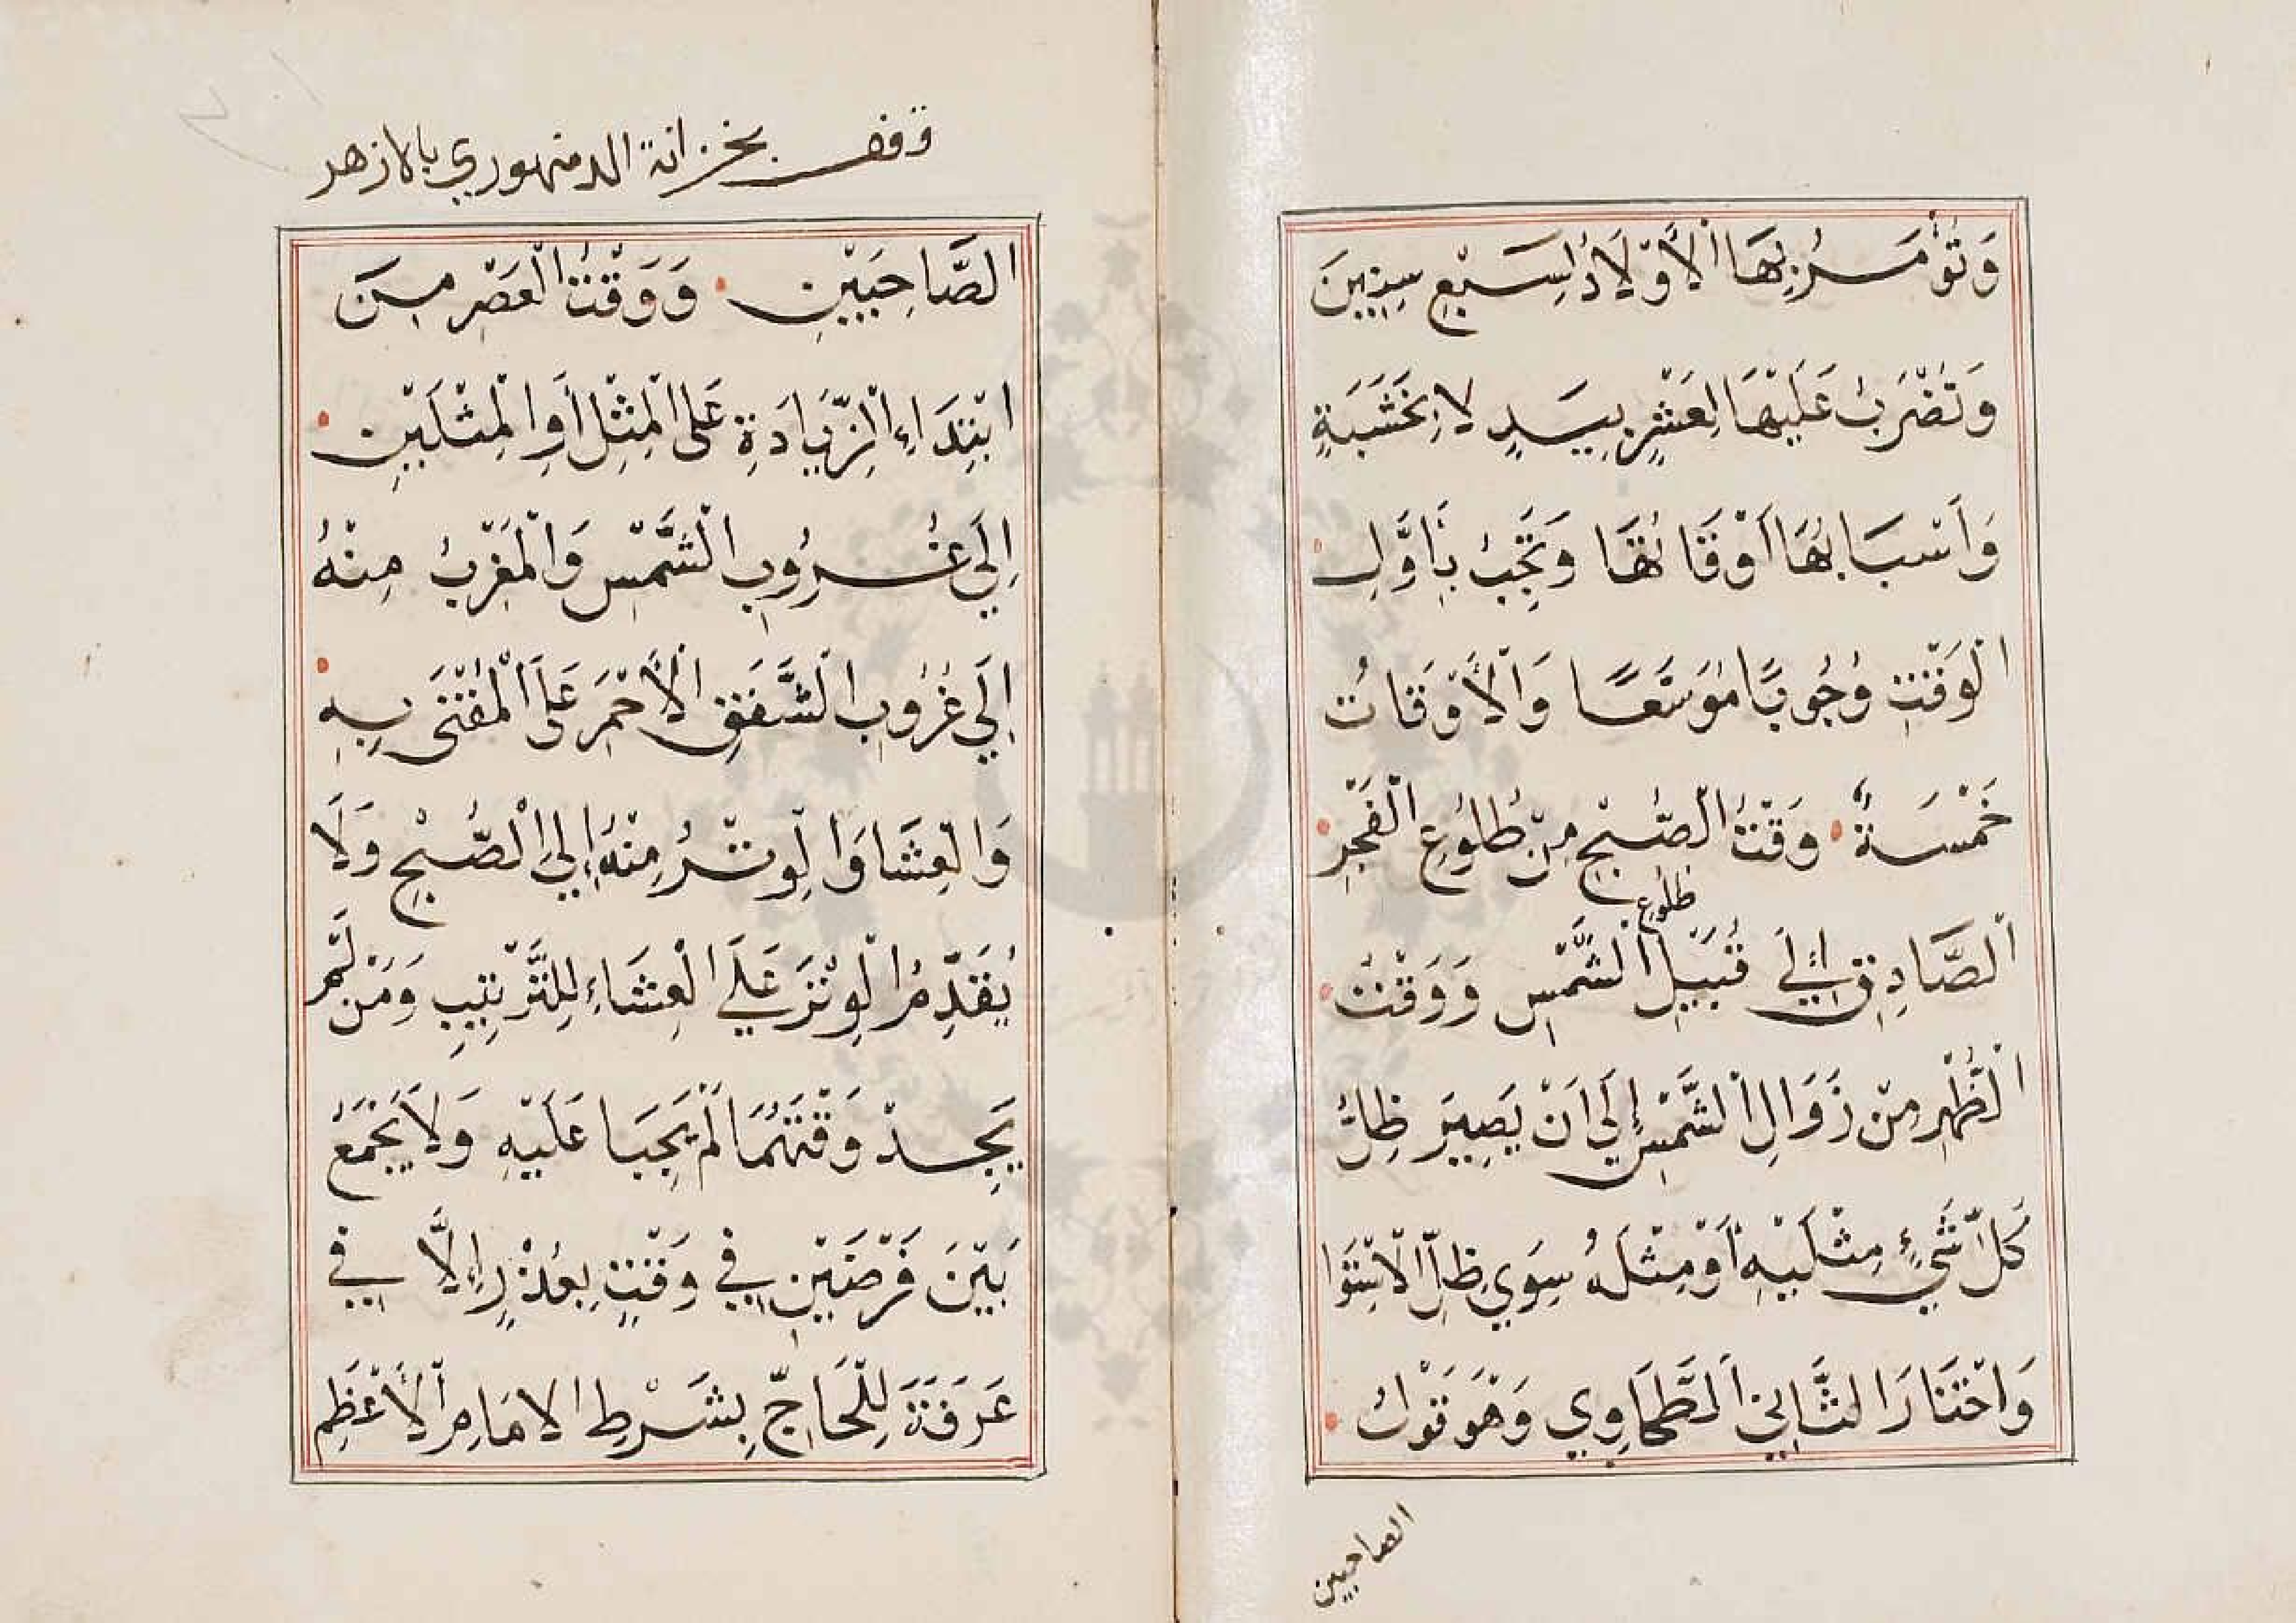 وَتُؤْمَرُ بِهَا الْأَوْلَادُ لِسَبْعِ سِنِينَ
وَتُضْرَبُ عَلَيْهَا لِعَشْرٍ بِيَدٍ لَا بِخَشَبَةٍ
وَأَسْبَابُهَا أَوْقَاتُهَا وَتَجِبُ بِأَوَّلِ
الْوَقْتِ وُجُوبًا مُوَسَّعًا وَالْأَوْقَاتُ
خَمْسَةٌ وَقْتُ الصُّبْحِ مِنْ طُلُوعِ الْفَجْرِ
الصَّادِقِ إِلَى قُبَيْلِ طلوع الشَّمْسِ وَوَقْتُ
الظُّهْرِ مِنْ زَوَالِ الشَّمْسِ إِلَي اَنْ يَصِيرَ ظِلُّ
كُلِّ شَيْءٍ مِثْلَيْهِ أَوْ مِثْلَهُ سِوَي ظِلِّ الْاسْتِوَا
وَاخْتَارَ الثَّانِيَ الطَّحَاوِي وَهُوَ قَوْلُ
الصاحبين
وقف بخزانة الدمنهوري بالازهر
الصَّاحِبَيْنِ وَوَقْتُ الْعَصْرِ مِنَ
ابْتِدَاءِ الزِّيَادَةِ عَلَى الْمِثْلِ أَوِ الْمِثْلَيْنِ
إِلَي غُرُوبِ الشَّمْسِ وَالْمَغْرِبُ مِنْهُ
إِلَي غُرُوبِ الشَّفَقِ الْأَحْمَرِ عَلَى الْمُفْتَى بِهِ
وَالْعِشَا وَالْوِتْرُ مِنْهُ إِلَي الصُّبْحِ وَلَا
يُقَدِّمُ الْوِتْرَ عَلَي الْعِشَاءِ لِلتَّرْتِيبِ وَمَنْ لَمْ
يَجِدْ وَقْتَهُمَا لَمْ يَجِبَا عَلَيْهِ وَلَا يَجْمَعُ
بَيْنَ فَرْضَيْنِ فِي وَقْتٍ بِعُذْرٍ إِلَّا فِي
عَرَفَةَ لِلْحَاجِّ بِشَرْطِ الْامَامِ الْأَعْظَمِ